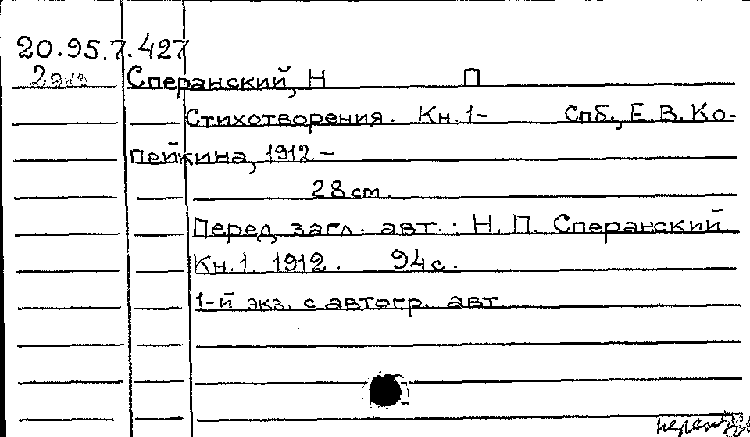 20.95.7.427
2 экз Сперанский, Н П
Стихотворения. Кн. 1- Спб., Е. В. Ко-
пейкина, 1912 -
28 см.
Перед загл. авт.: Н. П. Сперанский
Кн. 1. 1912. 94 с.
1-й экз. с автогр. авт.